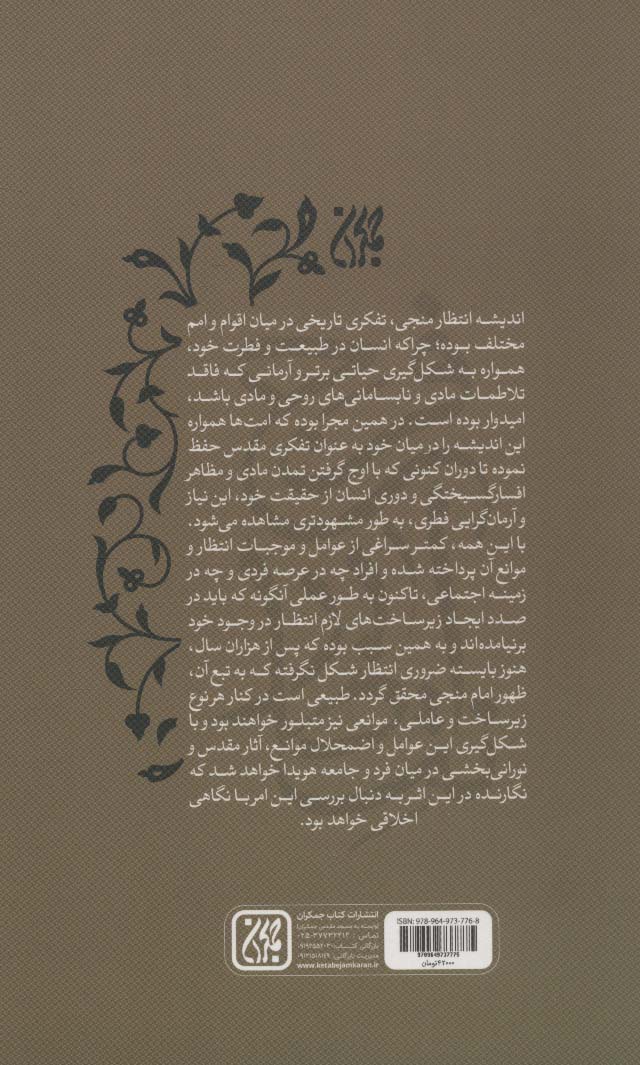 جمکران
اندیشه انتظار منجی، تفکری تاریخی در میان اقوام و امم
مختلف بوده؛ چراکه انسان در طبیعت و فطرت خود،
همواره به شکل‌گیری حیاتی برتر و آرمانی که فاقد
تلاطمات مادی و نابسامانی‌های روحی و مادی باشد،
امیدوار بوده است. در همین مجرا بوده که امت‌ها همواره
این اندیشه را در میان خود به عنوان تفکری مقدس حفظ
نموده تا دوران کنونی که با اوج گرفتن تمدن مادی و مظاهر
افسارگسیختگی و دوری انسان از حقیقت خود، این نیاز
و آرمان‌گرایی فطری، به طور مشهودتری مشاهده می‌شود.
با این همه، کمتر سراغی از عوامل و موجبات انتظار و
موانع آن پرداخته شده و افراد چه در عرصه فردی و چه در
زمینه اجتماعی، تاکنون به طور عملی آنگونه که باید در
صدد ایجاد زیرساخت‌های لازم انتظار در وجود خود
برنیامده‌اند و به همین سبب بوده که پس از هزاران سال،
هنوز بایسته ضروری انتظار شکل نگرفته که به تبع آن،
ظهور امام منجی محقق گردد. طبیعی است در کنار هر نوع
زیرساخت و عاملی، موانعی نیز متبلور خواهند بود و با
شکل‌گیری این عوامل و اضمحلال موانع، آثار مقدس و
نورانی‌بخشی در میان فرد و جامعه هویدا خواهد شد که
نگارنده در این اثر به دنبال بررسی این امر با نگاهی
اخلاقی خواهد بود.
جمکران
انتشارات کتاب جمکران
(وابسته به مسجد مقدس جمکران)
تماس : ۰۲۵-۳۷۷۳۲۲۱۲
بازرگانی کتاب:
مدیریت بازرگانی:
www.ketabejamkaran.ir
ISBN: 978-964-973-776-8
9789649737775
۴۲۰۰۰تومان